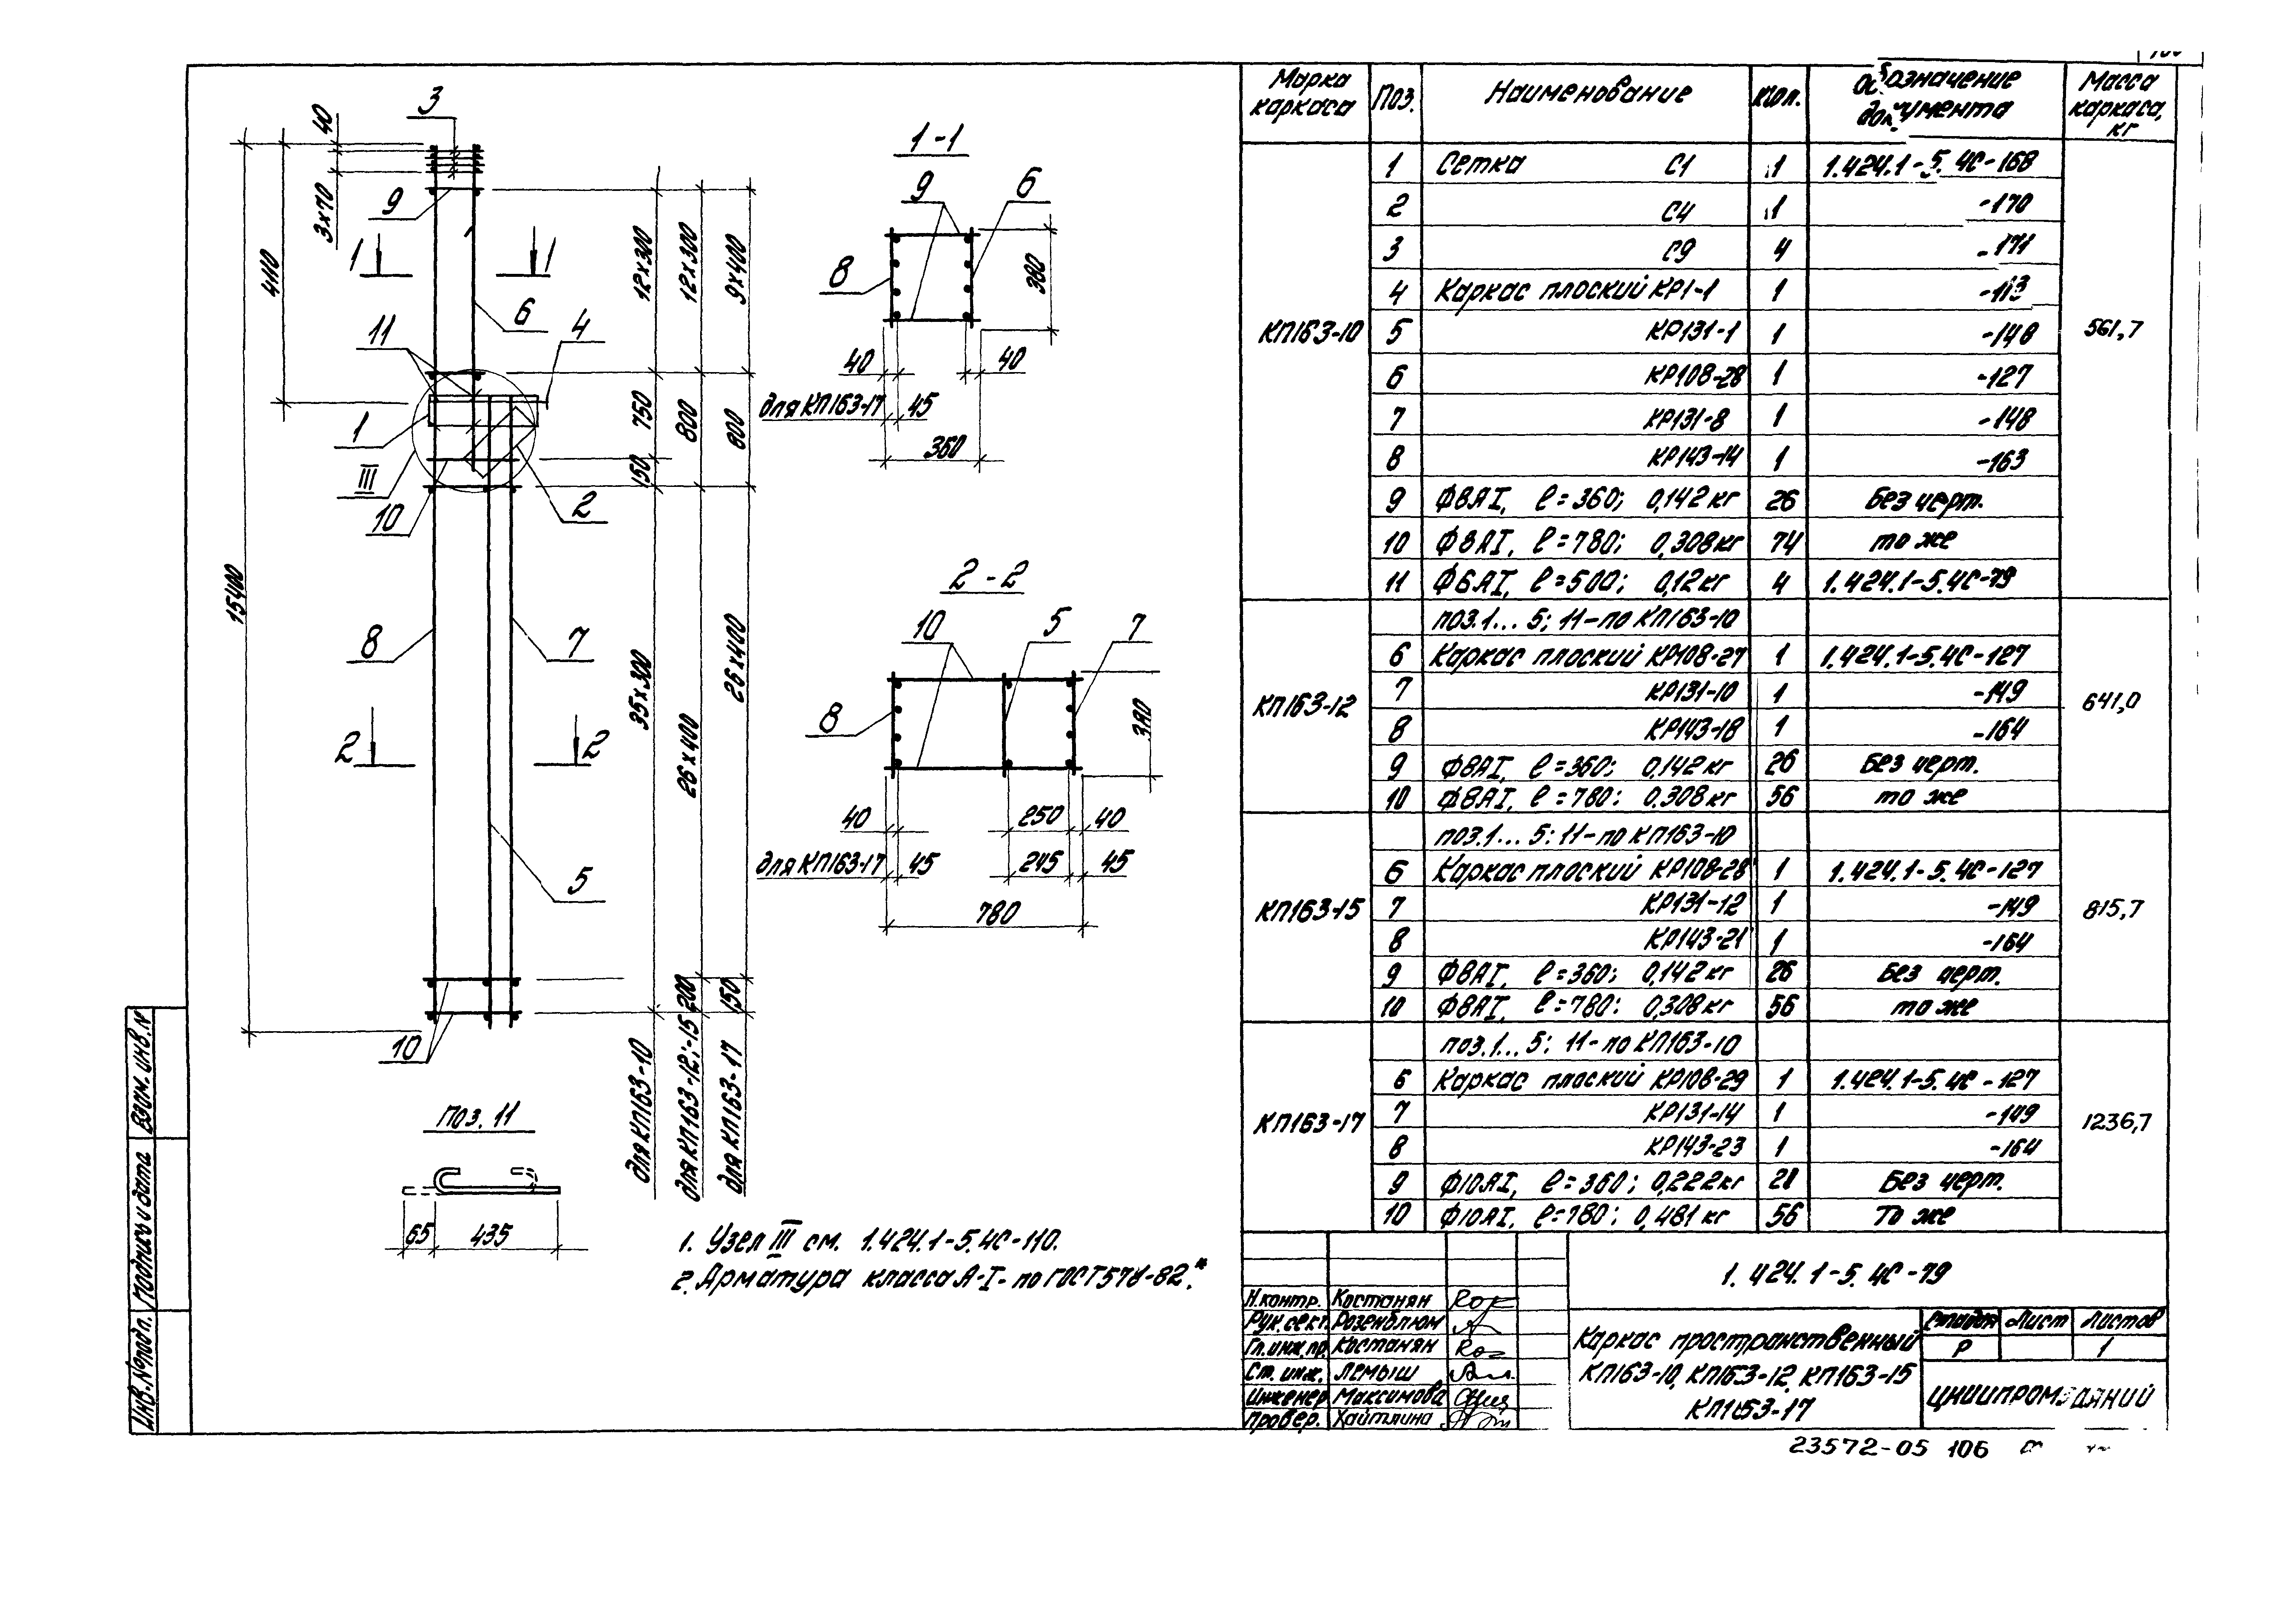 Марка каркаса Поз. Наименование Кол. Обозначение документа Масса каркаса, кг
КП163-10 561,7
1 Сетка С1 1 1.424.1-5.4С-168
2 С4 1 -170
3 С9 4 -171
4 Каркас плоский КР1-1 1 -113
5 КР131-1 1 -148
6 КР108-28 1 -127
7 КР131-8 1 -148
8 КР143-14 1 -163
9 Ф8АI, ℓ=360; 0,142кг 26 Без черт.
10 Ф8АI, ℓ=780; 0,308кг 74 то же
11 Ф6АI, ℓ=500; 0,12кг 4 1.424.1-5.4С-79
КП163-12 641,0
поз.1... 5; 11-по КП163-10
6 Каркас плоский КР108-27 1 1.424.1-5.4С-127
7 КР131-10 1 -149
8 КР143-18 1 -164
9 Ф8АI, ℓ=360; 0,142кг 26 Без черт.
10 Ф8АI, ℓ=780; 0,308кг 56 то же
КП163-15 815,7
поз.1... 5; 11-по КП163-10
6 Каркас плоский КР108-28 1 1.424.1-5.4С-127
7 КР131-12 1 -149
8 КР143-21 1 -164
9 Ф8АI, ℓ=360; 0,142кг 26 Без черт.
10 Ф8АI, ℓ=780; 0,308кг 56 то же
КП163-17 1236,7
поз.1... 5; 11-по КП163-10
6 Каркас плоский КР108-29 1 1.424.1-5.4С-127
7 КР131-14 1 -149
8 КР143-23 1 -164
9 Ф10АI, ℓ=360; 0,222кг Без черт.
10 Ф10АI, ℓ=780; 0,481кг 56 То же
3
40
3х70
4110
15400
9
1 1
6
11
4
1
III
10
2
8
7
2 2
5
10
12х300
750
150
35х300
для КП163-10
12х300
800
26х400
200
для КП163-12;-15
9х400
800
26х400
150
для КП163-17
1-1
9 6
8
380
40 40
для КП163-17 45
360
2-2
10 5 7
8
380
40 250 40
для КП163-17 45 245 45
780
поз. 11
65 435
1. Узел III см. 1.424.1-5.4С-110.
2. Арматура класса А-I- по ГОСТ 5781-82.*
1.424.1-5.4С-79
Н.контр. Костанян
Рук.сект. Розенблюм
Гл.инж.пр. Костанян
Ст. инж. Лемыш
Инженер Максимова
Провер. Хайтлина
Каркас пространственный
КП163-10, КП163-12, КП163-15
КП163-17
Стадия Лист Листов
Р 1
ЦНИИПРОМЗДАНИЙ
Инв.№подл. Подпись и дата Взам.инв.№
23572-05 106